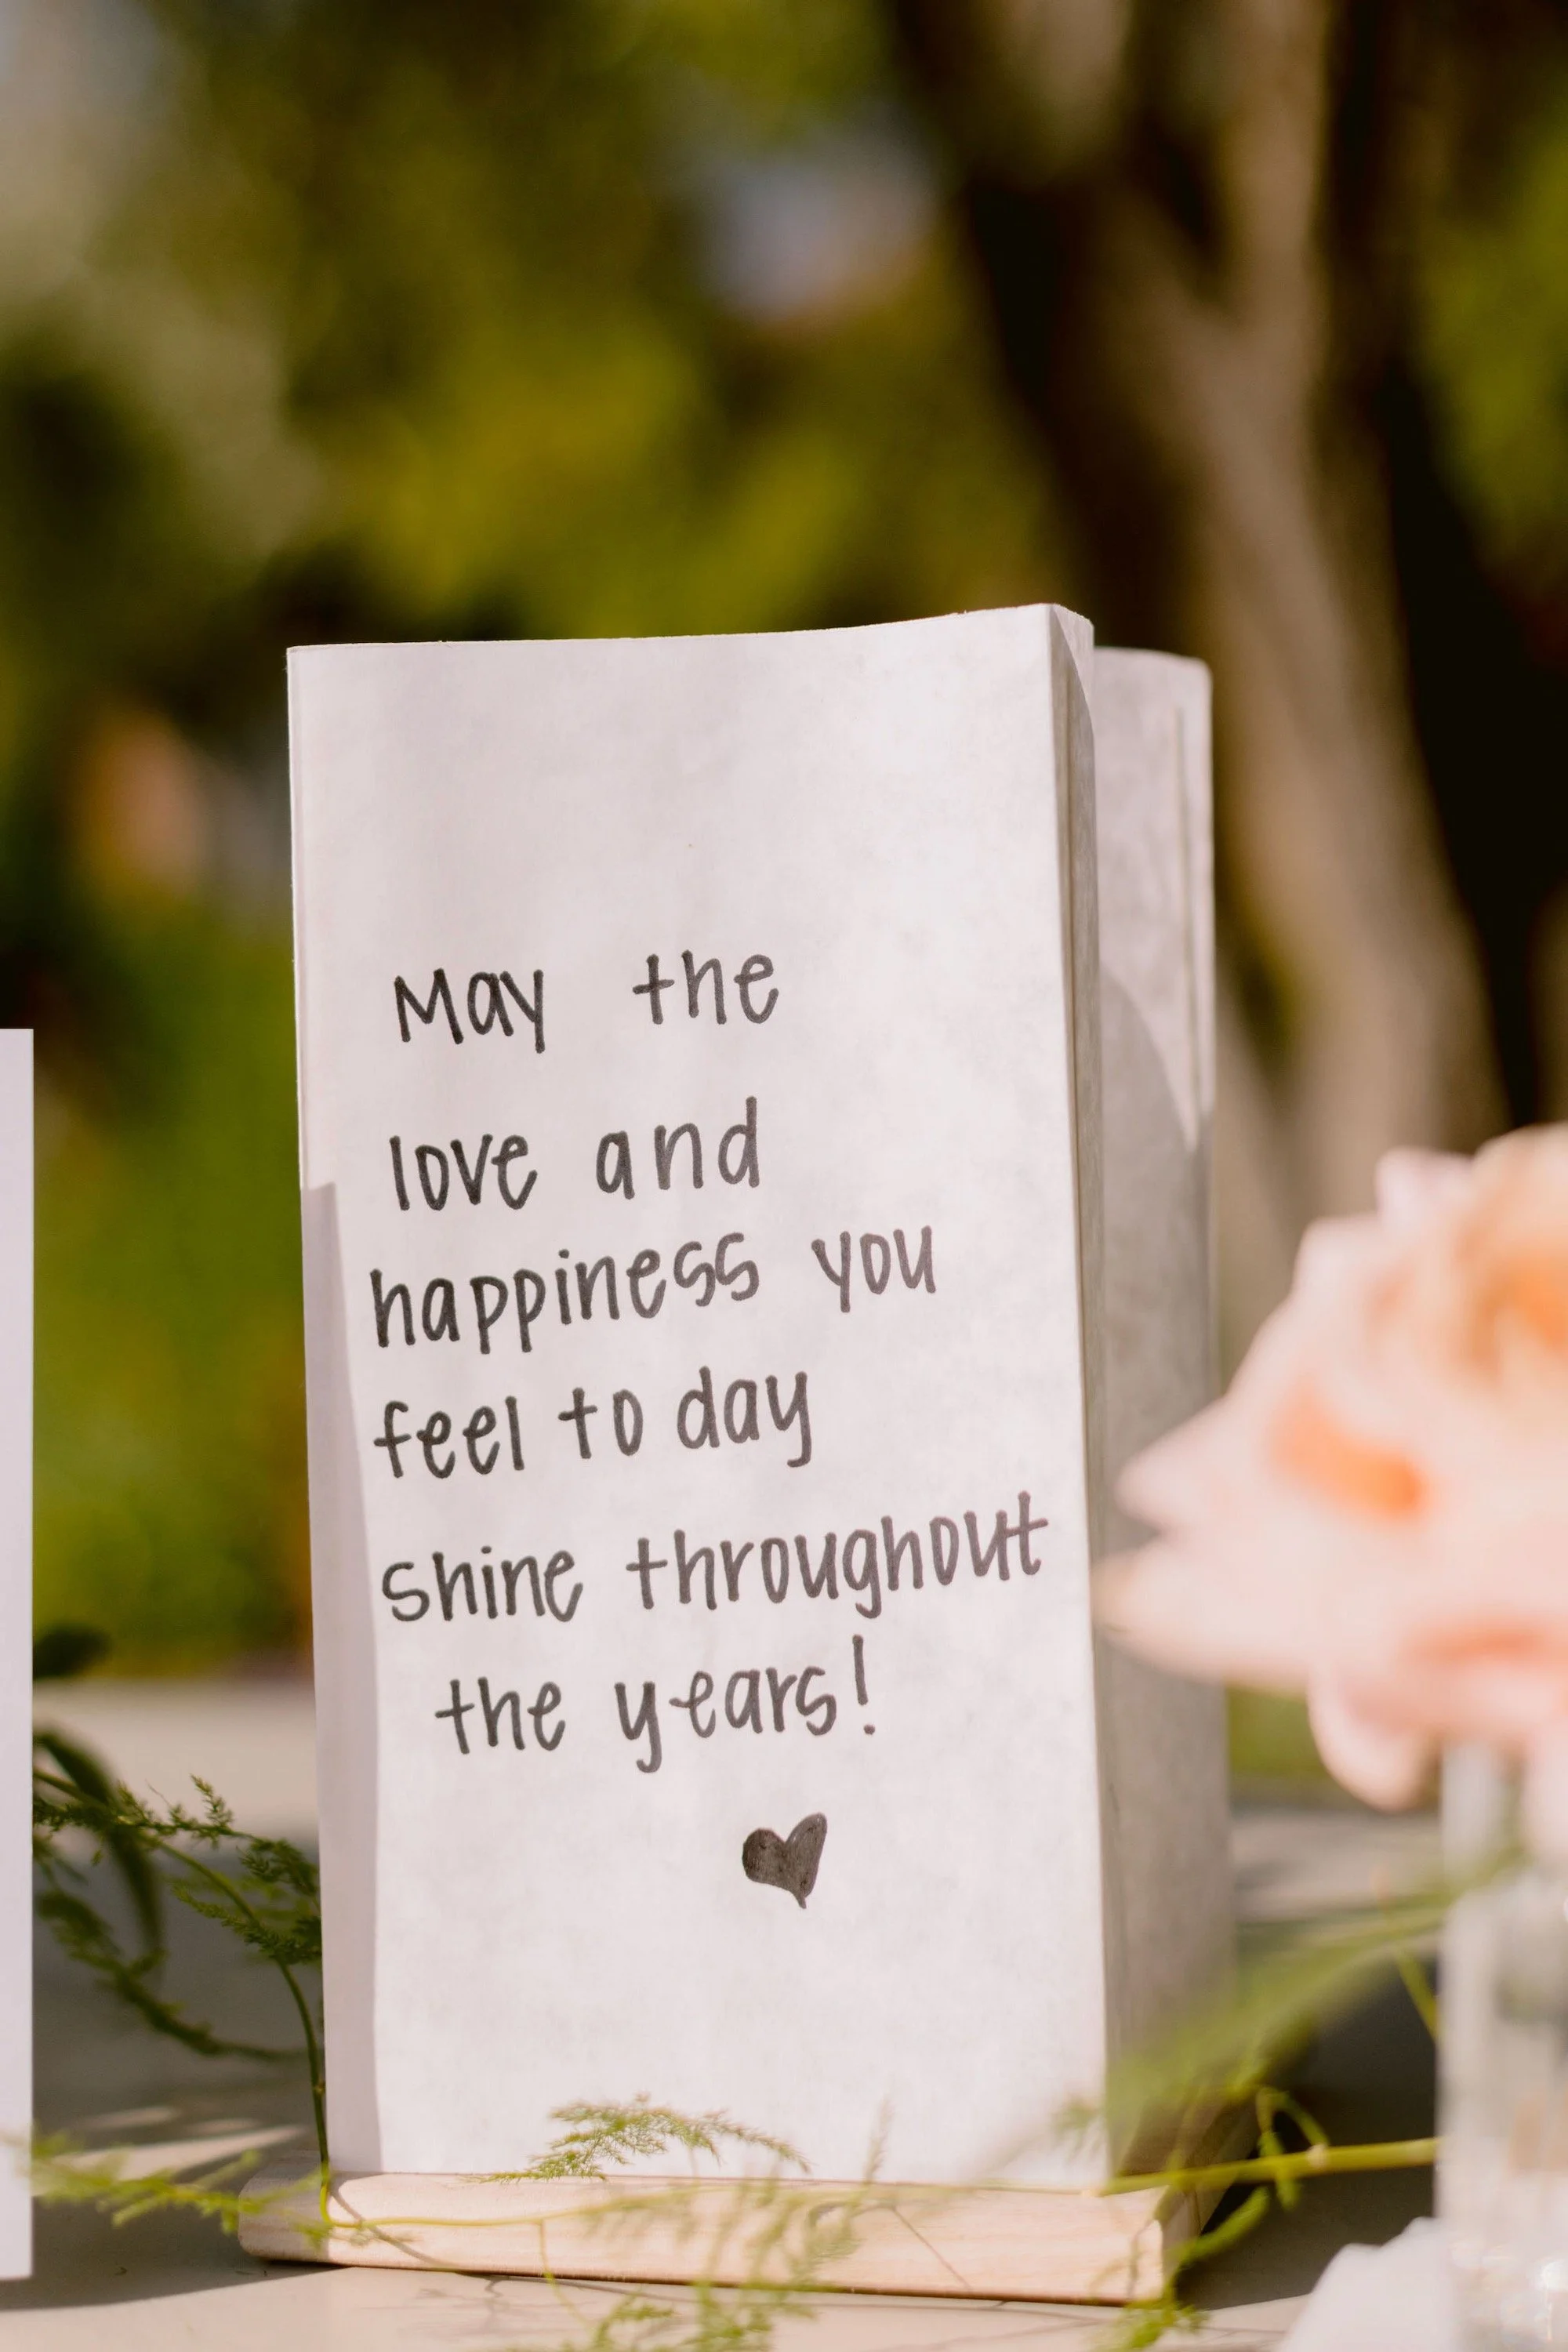 May the
love and
happiness you
feel to day
shine throughout
the years!